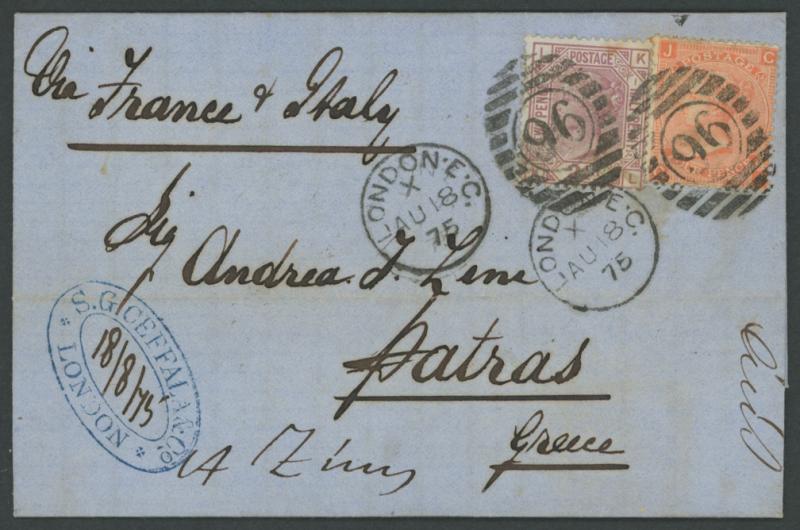 Via France & Italy
I POSTAGE K
J POSTAGE C
96
96
L
LONDON·E·C.
X
AU 18
75
LONDON·E·C.
X
AU 18
75
Sig Andrea J. Zine
Patras
Greece
S. G. CEFFALA & Co
18/8/75
* LONDON *
A Zini